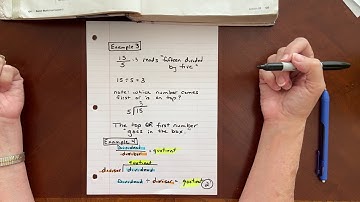 Example 3
15/5 → reads "fifteen divided
by five"
15 ÷ 5 = 3
note: which number comes
first or is on top?
3
5 15
The top OR first number
"goes in the box.
Example 4
dividend/divisor = quotient
quotient
divisor dividend
dividend ÷ divisor = quotient
2